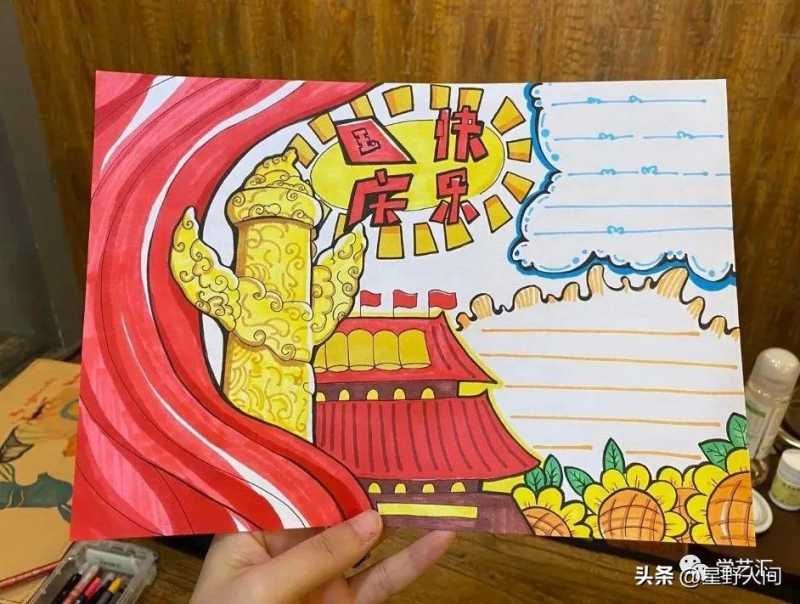 国庆
快乐
学艺汇
头条 @星野人间